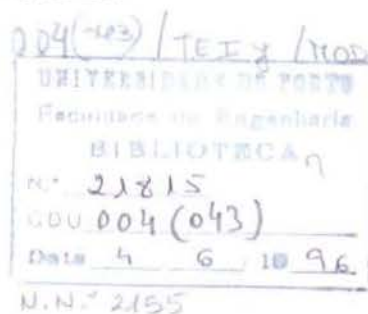 004(043) / TEIy / MOD
UNIVERSIDADE DO PORTO
Faculdade de Engenharia
BIBLIOTECA
N.º 21815
CDU 004 (043)
Data 4 6 19 96
N.N.º 2155